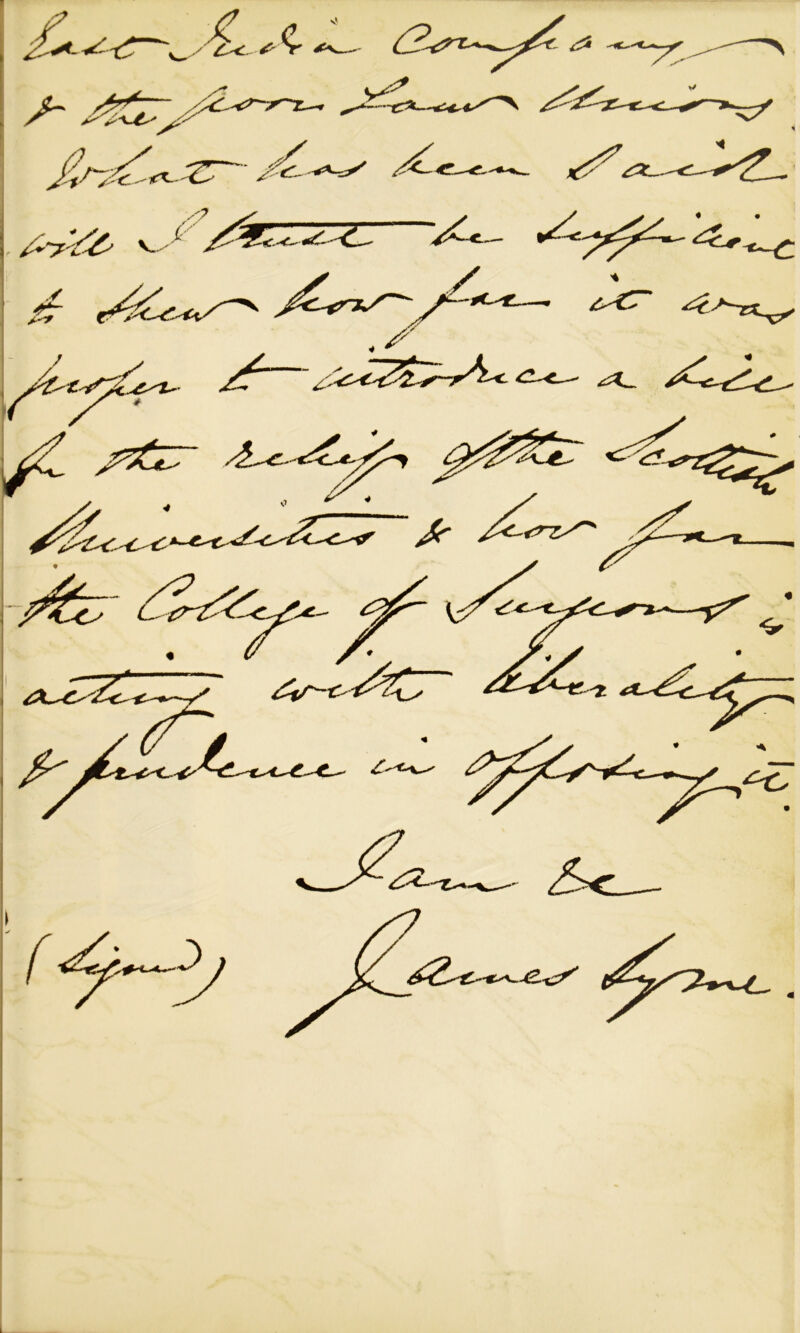 East India Company
& the poor Law Unions.
What has been said
will I trust be sufficient
to shew how far it was
proper to introduce a bill
for the relief of the Scottish
Universities & how far
the College of Surgeons is
acting with liberality
& prudence in opposing it.
I am &c
(Signed) James Syme.